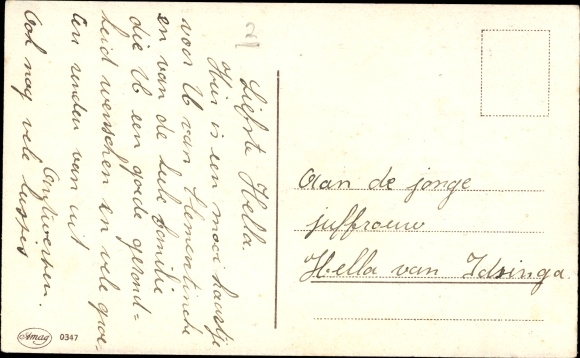 Liefste Hella.
Hier is een mooi kaartje
voor U van Clementinche
en van de hele familie
die U een goede gezond-
heid wenschen en vele groe-
ten zenden van uit
Antwerpen.
Ook nog vele kusjes
Aan de jonge
juffrouw
Hella van Idsinga
Amag 0347